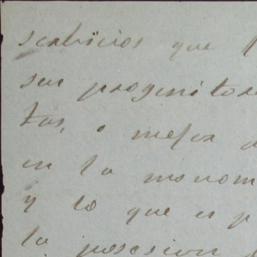 serbicios que
sus progenitore
tas, o mejor d
en la mo nom
y lo que es p
la posesion